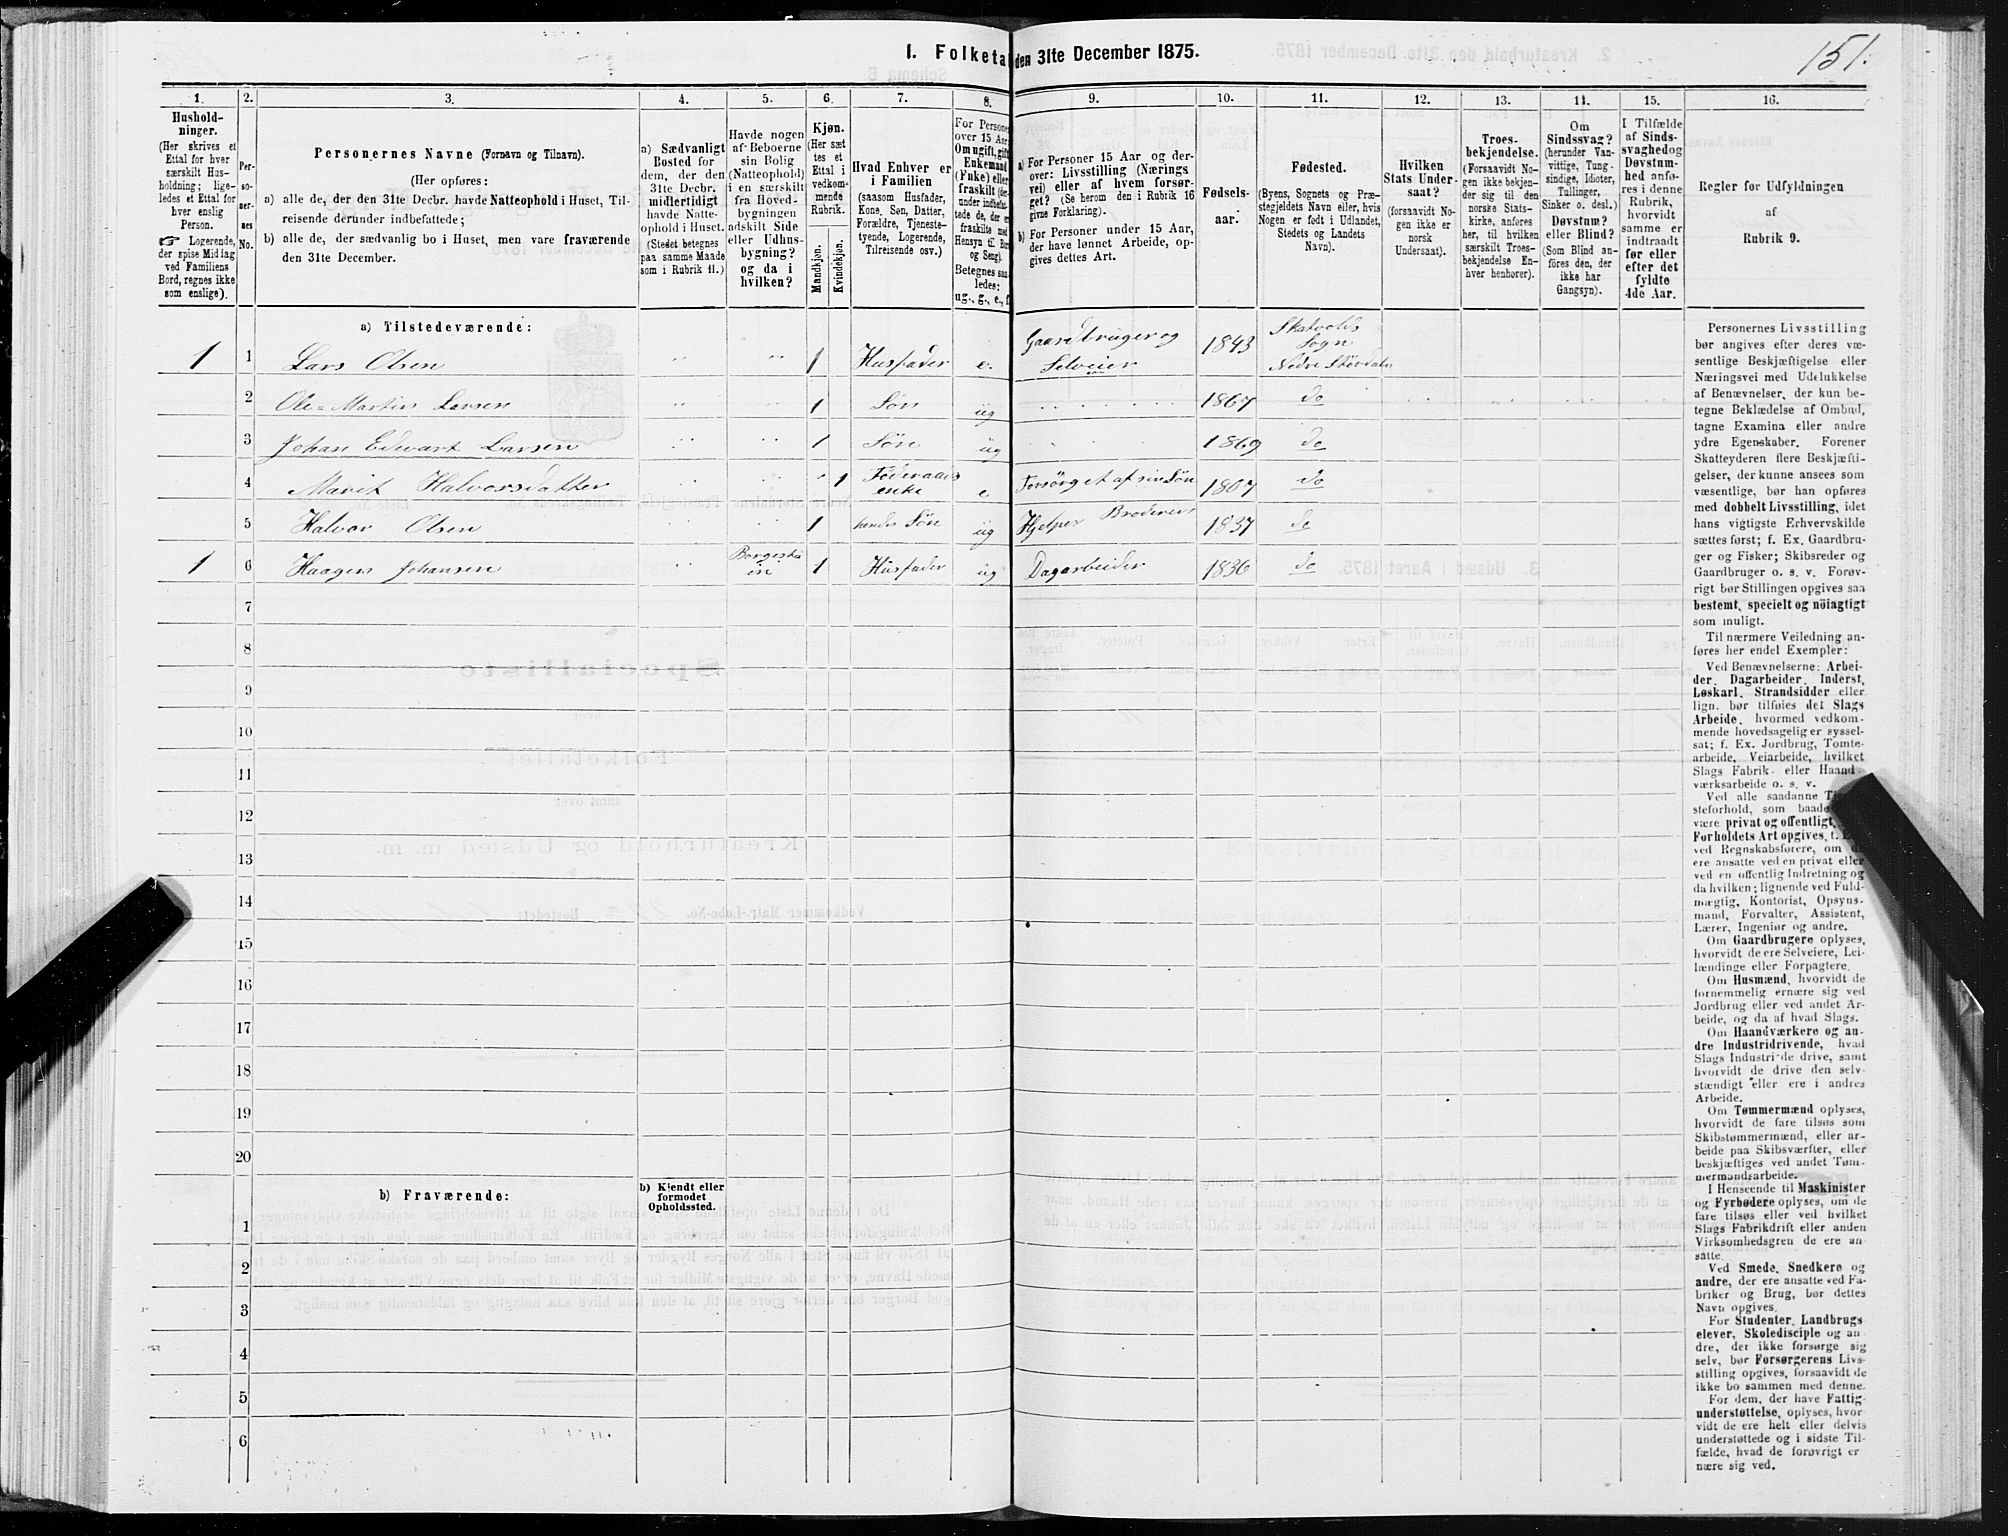 1. Folketal den 31te December 1875.
151.
1.
2.
3.
4.
5.
6.
7.
8.
9.
10.
11.
12.
13.
14.
15.
16.
Hushold-
ninger.
(Her skrives et
Ettal for hver
særskilt Hus-
holdning; lige-
ledes et Ettal for
hver enslig
Person.
☞ Logerende,
der spise Middag
ved Familiens
Bord, regnes ikke
som enslige).
Per-
so-
ner-
nes
No.
Personernes Navne (Fornavn og Tilnavn).
(Her opføres:
a) alle de, der den 31te Decbr. havde Natteophold i Huset, Til-
reisende derunder indbefattede;
b) alle de, der sædvanlig bo i Huset, men vare fraværende
den 31te December.
a) Sædvanligt
Bosted for
dem, der den
31te Decbr.
midlertidigt
havde Natte-
ophold i Huset.
(Stedet betegnes
paa samme Maade
som i Rubrik 11.)
Havde nogen
af Beboerne
sin Bolig
(Natteophold)
i en særskilt
fra Hoved-
bygningen
adskilt Side
eller Udhus-
bygning?
og da i
hvilken?
Kjøn.
(Her sæt
tes et
Ettal i
vedkom-
mende
Rubrik.
Mandkjøn.
Kvindekjøn.
Hvad Enhver er
i Familien
(saasom Husfader,
Kone, Søn, Datter,
Forældre, Tjeneste-
tyende, Logerende,
Tilreisende osv.)
For Personer
over 15 Aar:
Om ugift, gift,
Enkemand
(Enke) eller
fraskilt
Betegnes saa-
ledes:
ug., g., e., f.
a) For Personer 15 Aar og der-
over: Livsstilling (Nærings
vei) eller af hvem forsør-
get? (Se herom den i Rubrik 16
givne Forklaring).
b) For Personer under 15 Aar,
der have lønnet Arbeide, op-
gives dettes Art.
Fødsels-
aar.
Fødested.
(Byens, Sognets og Præ-
stegjeldets Navn eller, hvis
Nogen er født i Udlandet,
Stedets og Landets
Navn).
Hvilken
Stats Under-
saat?
(forsaavidt No-
gen ikke er
norsk
Undersaat).
Troes-
bekjendelse.
(Forsaavidt No-
gen ikke bekjen-
der sig til den
norske Stats-
kirke, anføres
her, til hvilken
særskilt Troes-
bekjendelse En-
hver henhører).
Om
Sindssvag?
(herunder Van-
vittige, Tung-
sindige, Idioter,
Tullinger,
Sinker o. desl.)
Døvstum?
eller Blind?
(Som Blind an-
føres den, der
ikke har
Gangsyn).
I Tilfælde
af Sinds-
svaghed og
Døvstum-
hed anfø-
res i denne
Rubrik,
hvorvidt
samme er
indtraadt
før eller
efter det
fyldte
4de Aar.
Regler for Udfyldningen
af
Rubrik 9.
a) Tilstedeværende:
1 1 Lars Olsen " " 1 Husfader e. Gaardbruger og Selveier 1843 Skatvolds Sogn Nedre Størdalen
2 Ole Martin Larsen " " 1 Søn ug 1867 do
3 Johan Edvart Larsen " " 1 Søn ug 1869 do
4 Marit Halvorsdatter 1 Føderaads enke e. Forsørget af sin Søn 1807 do
5 Halvor Olsen 1 hendes Søn ug Hjelper Broderen 1837 do
1 6 Haagen Johansen 1 Husfader ug Dagarbeider 1836 do
7
8
9
10
11
12
13
14
15
16
17
18
19
20
b) Fraværende:
b) Kjendt eller
formodet
Opholdssted.
1
2
3
4
5
6
Personernes Livsstilling
bør angives efter deres væ-
sentlige Beskjæftigelse eller
Næringsvei med Udelukkelse
af Benævnelser, der kun be-
tegne Beklædelse af Ombud,
tagne Examina eller andre
ydre Egenskaber. Forener
Skatteyderen flere Beskjæfti-
gelser, der kunne ansees som
væsentlige, bør han opføres
med dobbelt Livsstilling, idet
hans vigtigste Erhvervskilde
sættes først; f. Ex. Gaardbru-
ger og Fisker; Skibsreder og
Gaardbruger o. s. v. Forøv-
rigt bør Stillingen opgives saa
bestemt, specielt og nøiagtigt
som muligt.
Til nærmere Veiledning an-
føres her endel Exempler:
Ved Benævnelserne: Arbei-
der, Dagarbeider, Inderst,
Løskarl, Strandsidder eller
lign. bør tilføies det Slags
Arbeide, hvormed vedkom-
mende hovedsagelig er syssel-
sat; f. Ex. Jordbrug, Tomte-
arbeide, Veiarbeide, hvilket
Slags Fabrik- eller Haand-
værksarbeide o. s. v.
Ved alle saadanne
steforhold, som baade
være privat og offentligt,
Forholdets Art opgives, t.
ved Regnskabsførere, om
ere ansatte ved en privat eller
ved en offentlig Indretning og
da hvilken; lignende ved Fuld-
mægtig, Kontorist, Opsyns-
mand, Forvalter, Assistent,
Lærer, Ingeniør og andre.
Om Gaardbrugere oplyses,
hvorvidt de ere Selveiere, Lei-
lændinge eller Forpagtere.
Om Husmænd, hvorvidt de
fornemmelig ernære sig ved
Jordbrug eller ved andet Ar-
beide, og da af hvad Slags.
Om Haandværkere og an-
dre Industridrivende, hvad
Slags Industri de drive, samt
hvorvidt de drive den selv-
stændigt eller ere i andres
Arbeide.
Om Tømmermænd oplyses,
hvorvidt de fare tilsøs som
Skibstømmermænd, eller ar-
beide paa Skibsværfter, eller
beskjæftiges ved andet Tøm-
mermandsarbeide.
I Henseende til Maskinister
og Fyrbødere oplyses, om de
fare tilsøs eller ved hvilket
Slags Fabrikdrift eller anden
Virksomhedsgren de ere an-
satte.
Ved Smede, Snedkere og
andre, der ere ansatte ved Fa-
briker og Brug, bør dettes
Navn opgives.
For Studenter, Landbrugs
elever, Skoledisciple og an
dre, der ikke forsørge sig
selv, bør Forsørgerens Livs-
stilling opgives, forsaavidt de
ikke bo sammen med denne.
For dem, der have Fattig-
understøttelse, oplyses, hvor
vidt de ere helt eller delvis
understøttede og i sidste Til-
fælde, hvad de forøvrigt er
nære sig ved.